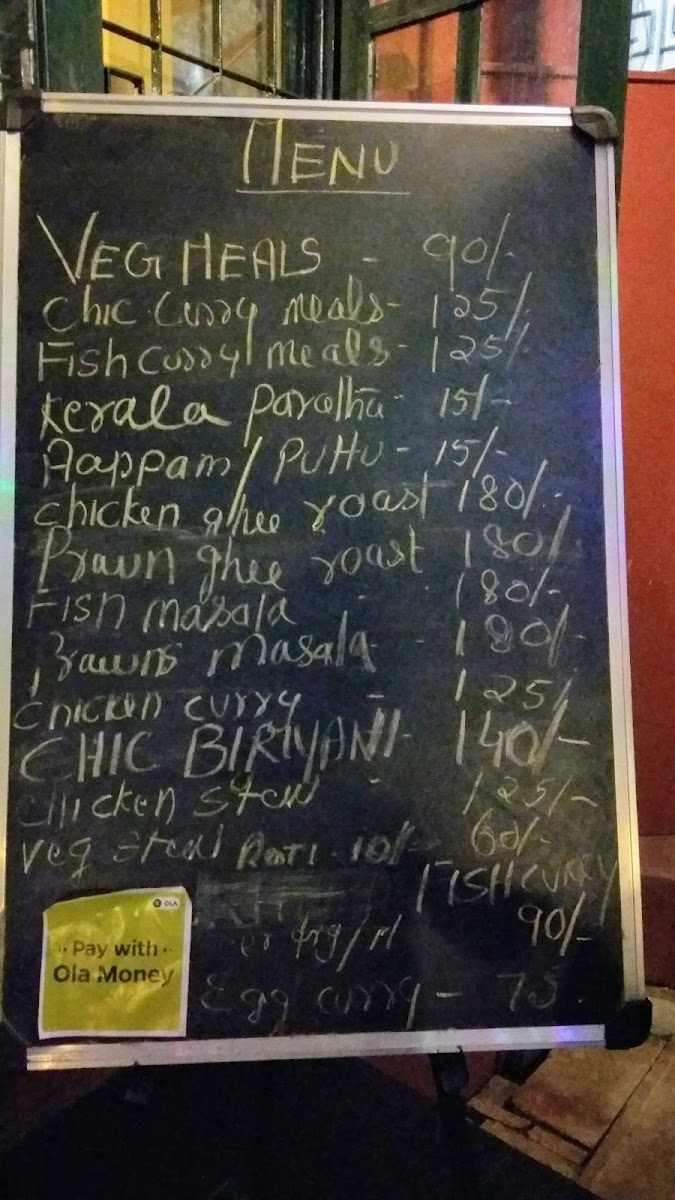 MENU
VEG MEALS - 90/-
Chic Curry meals- 125/-
Fish curry meals- 125/-
Kerala Parotha- 15/-
Aappam/PUttu- 15/-
chicken ghee roast 180/-
Prawn ghee roast 180/-
Fish masala - 180/-
Prawns masala - 180/-
Chicken curry - 125/-
CHIC BIRIYANI- 140/-
Chicken stew - 125/-
Veg stew Roti- 10/- 60/-
FISH CURRY
90/-
Egg curry - 75
OLA
Pay with
Ola Money